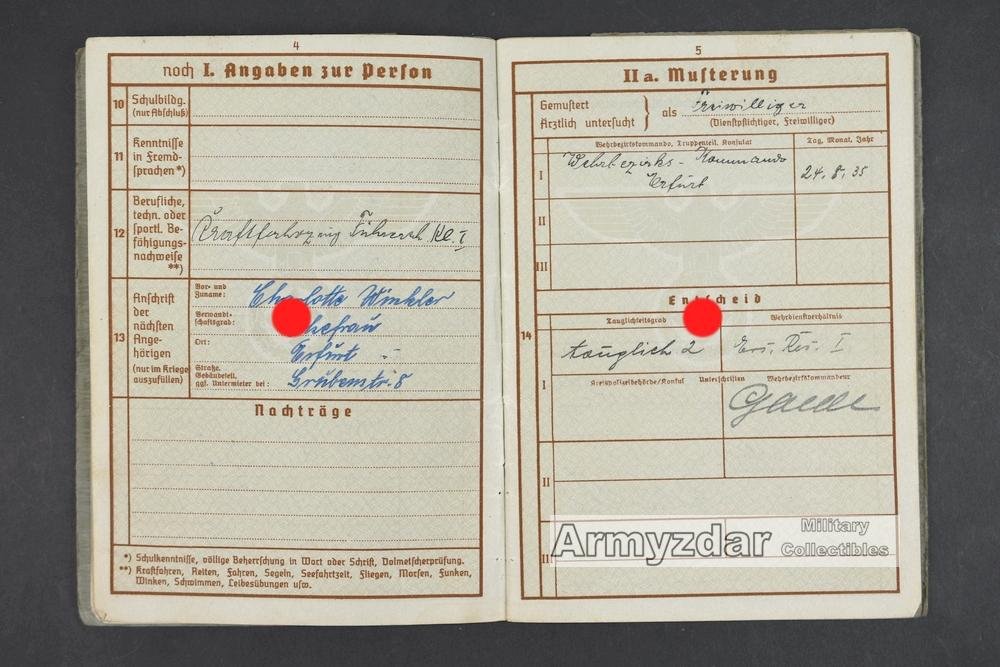 4
noch I. Angaben zur Person
10 Schulbildg.
(nur Abschluß)
11 Kenntnisse
in Fremd-
sprachen*)
12 Berufliche,
techn. oder
sportl. Be-
fähigungs-
nachweise
**)
Kraftfahrzeug Führersch Kl. I
13 Anschrift
der
nächsten
Ange-
hörigen
(nur im Kriege
auszufüllen)
Vor- und
Zuname:
Charlotte Winkler
Verwandt-
schaftsgrad:
Ehefrau
Ort:
Erfurt
Straße,
Gebäudeteil,
ggf. Untermieter bei:
Grubenstr. 8
Nachträge
*) Schulkenntnisse, völlige Beherrschung in Wort oder Schrift, Dolmetscherprüfung.
**) Kraftfahren, Reiten, Fahren, Segeln, Seefahrtzeit, Fliegen, Morsen, Funken,
Winken, Schwimmen, Leibesübungen usw.
5
IIa. Musterung
Gemustert
Ärztlich untersucht
als Freiwilliger
(Dienstpflichtiger, Freiwilliger)
Wehrbezirkskommando, Truppenteil, Konsulat
Tag, Monat, Jahr
I Wehrbezirks-Kommando
Erfurt
24.8.35
II
III
Entscheid
14
Tauglichkeitsgrad
Wehrdienstverhältnis
tauglich 2
Ers. Res. I
I
Kreispolizeibehörde/Konsul
Unterschriften
Wehrbezirkskommandeur
II
III
Armyzdar
Military
Collectibles